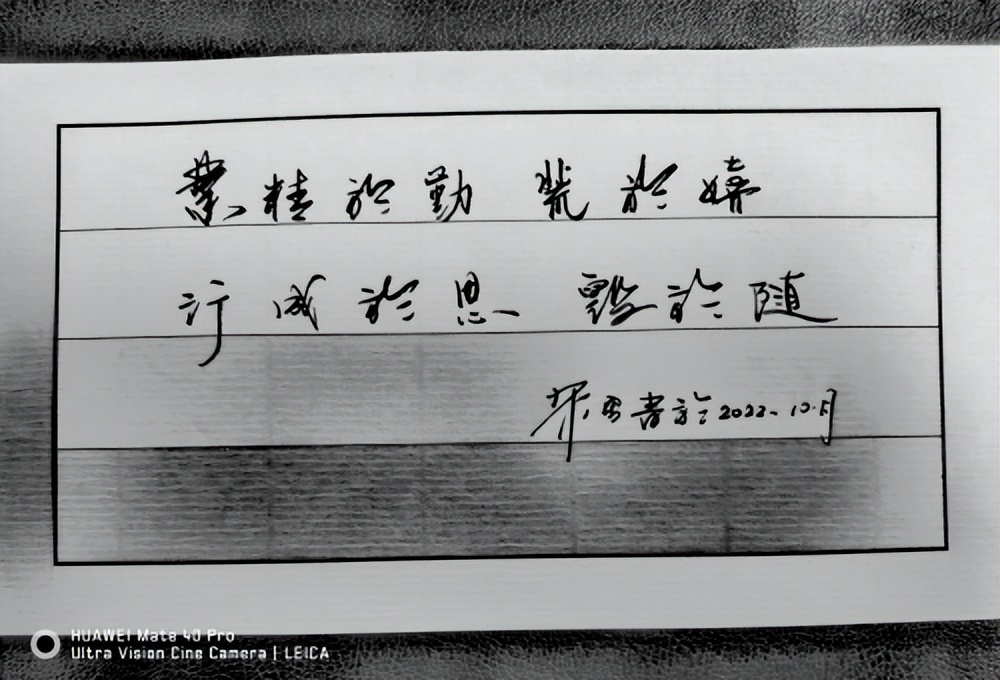 業精於勤 荒於嬉
行成於思 毀於隨
書於2022.10.月
HUAWEI Mate 40 Pro
Ultra Vision Cine Camera | LEICA